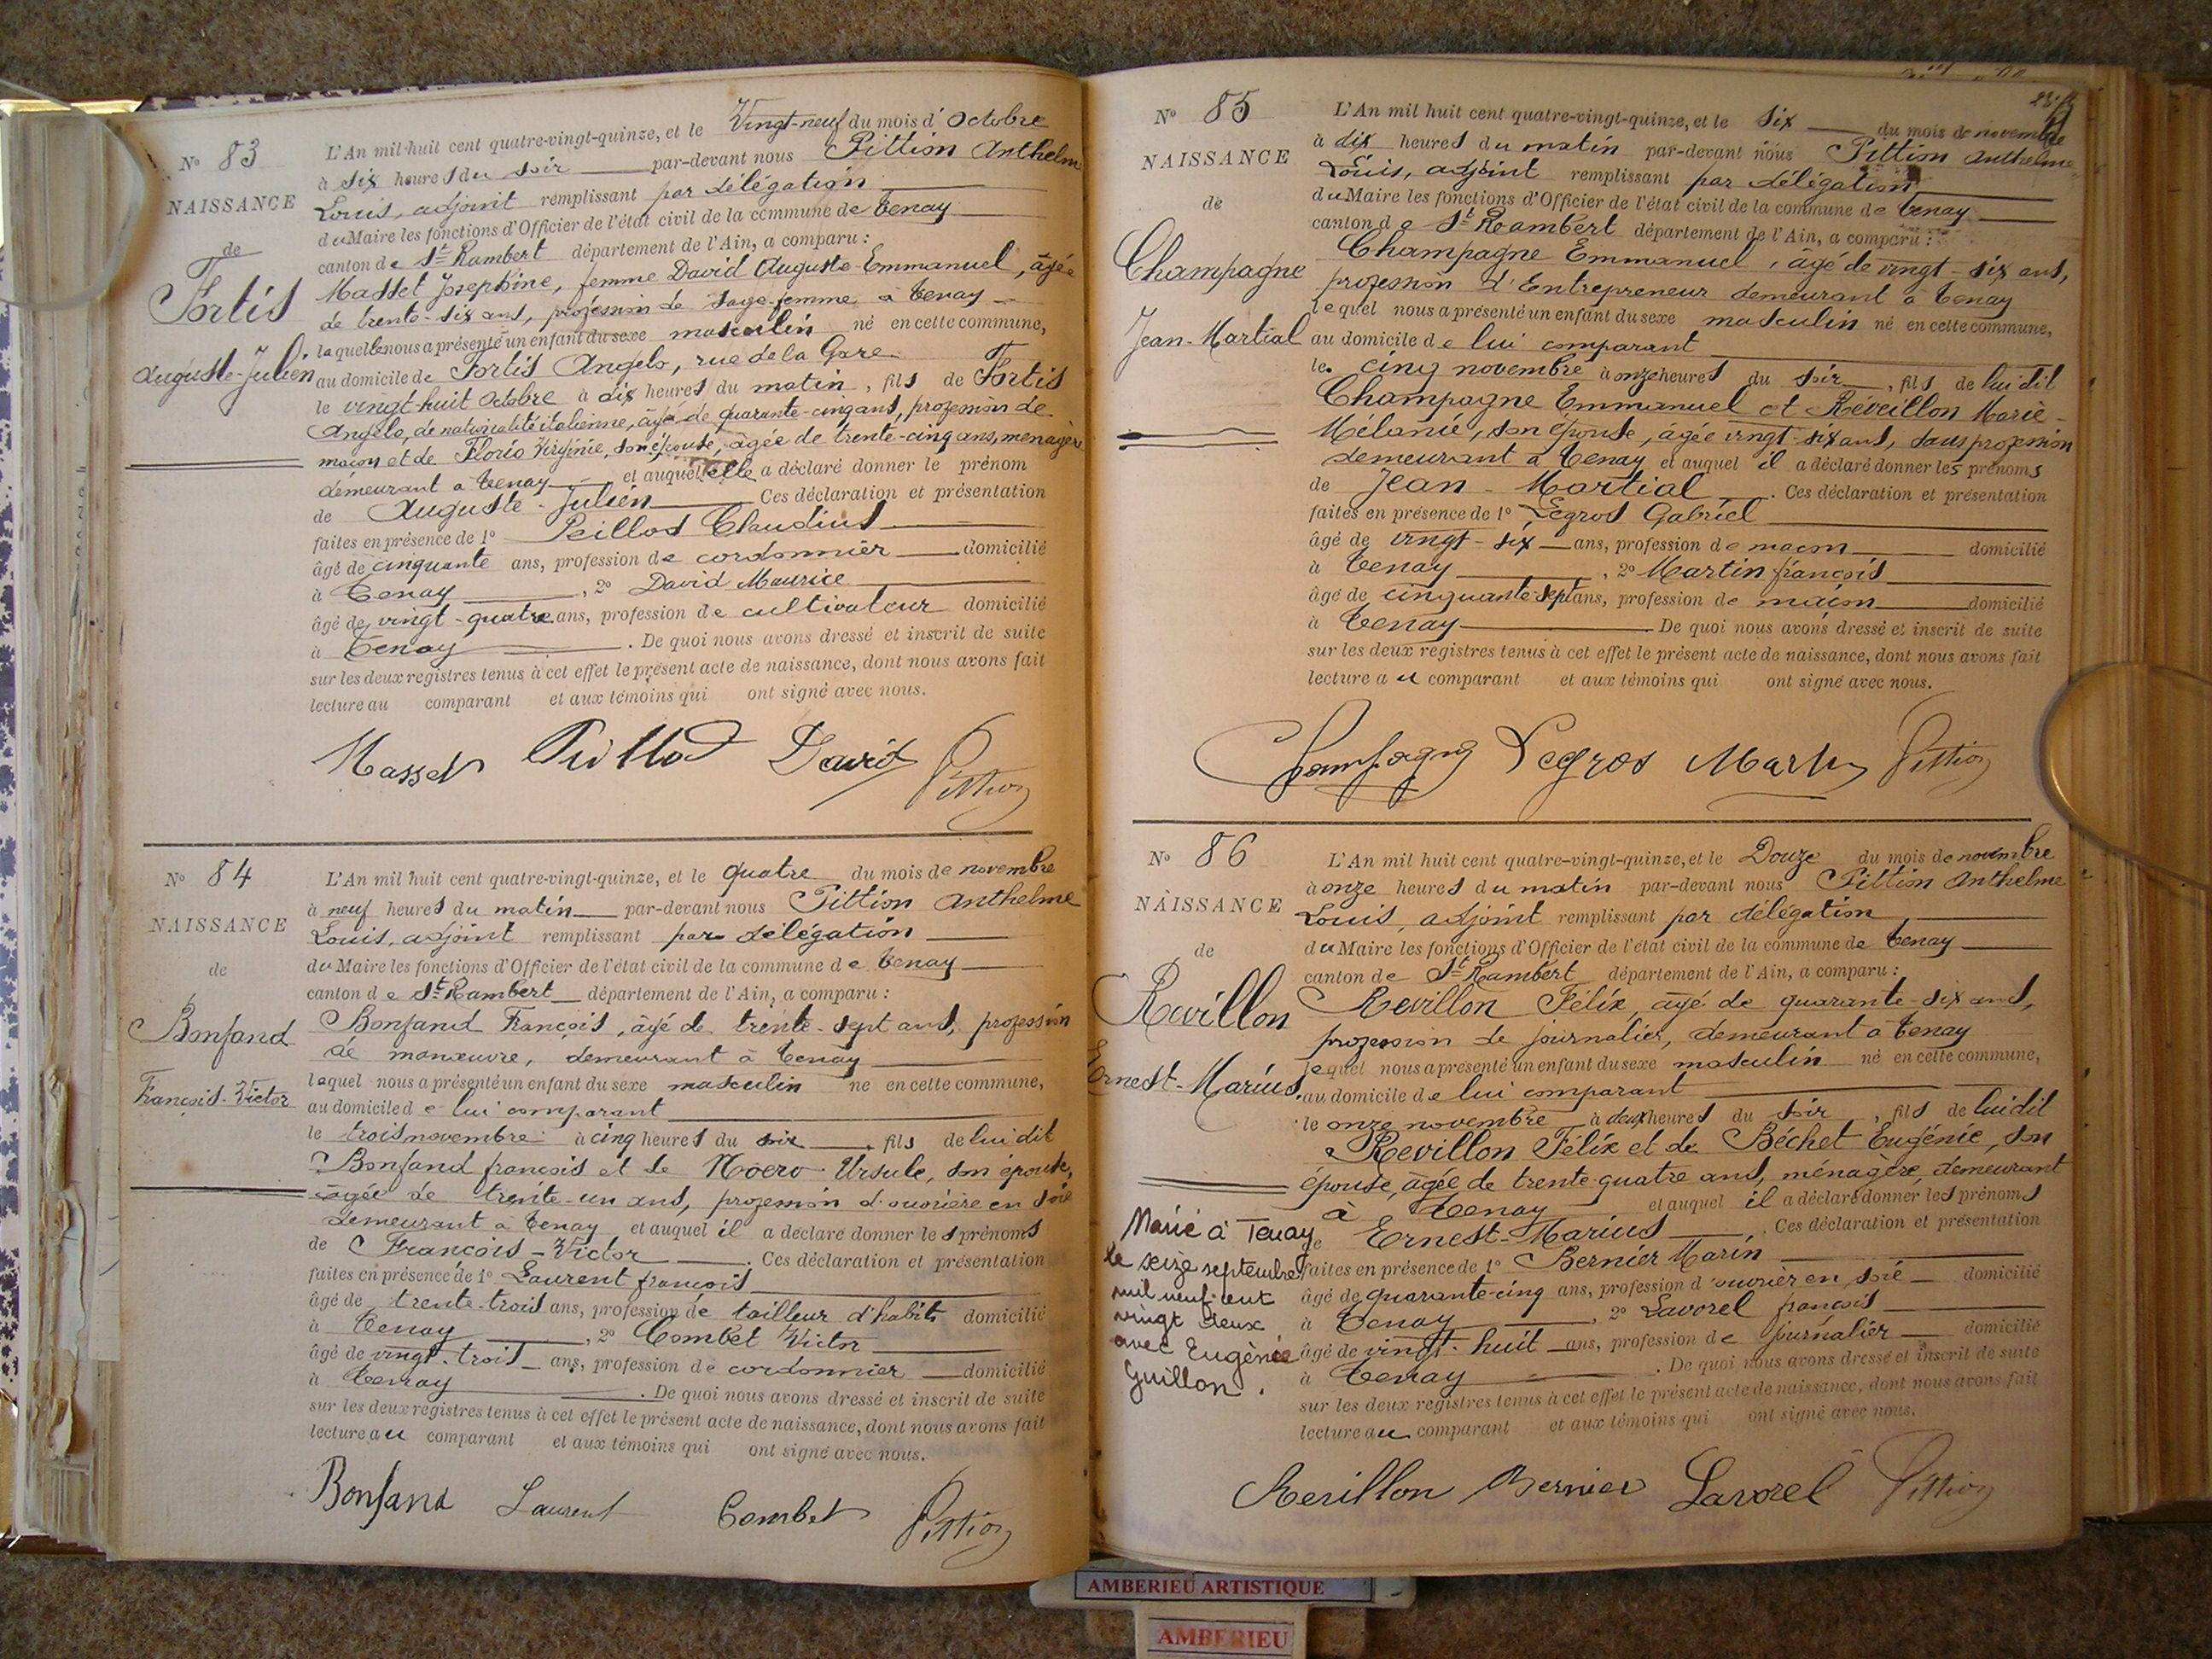 N° 83
NAISSANCE
de
Fortis
Auguste-Julien
L'An mil huit cent quatre-vingt-quinze, et le Vingt-neuf du mois d'Octobre
à six heures du soir par-devant nous Pittion Anthelme
Louis, adjoint remplissant par délégation
du Maire les fonctions d'Officier de l'état civil de la commune de Tenay
canton de St Rambert département de l'Ain, a comparu :
Masset Josephine, femme David Auguste-Emmanuel, âgée
de trente-six ans, profession de sage-femme à Tenay
laquelle nous a présenté un enfant du sexe masculin né en cette commune,
au domicile de Fortis Angelo, rue de la Gare
le vingt-huit Octobre à dix heures du matin, fils de Fortis
Angelo, de nationalité italienne, âgé de quarante-cinq ans, profession de
maçon et de Florio Virginie, son épouse, âgée de trente-cinq ans, menagère
demeurant a Tenay et auquel elle a déclaré donner le prénom
de Auguste-Julien Ces déclaration et présentation
faites en présence de 1° Peillod Claudius
âgé de cinquante ans, profession de cordonnier domicilié
à Tenay, 2° David Maurice
âgé de vingt-quatre ans, profession de cultivateur domicilié
à Tenay. De quoi nous avons dressé et inscrit de suite
sur les deux registres tenus à cet effet le présent acte de naissance, dont nous avons fait
lecture au comparant et aux témoins qui ont signé avec nous.
Masset Peillod David Pittion
N° 84
NAISSANCE
de
Bonfand
François-Victor
L'An mil huit cent quatre-vingt-quinze, et le quatre du mois de novembre
à neuf heures du matin par-devant nous Pittion Anthelme
Louis, adjoint remplissant par délégation
du Maire les fonctions d'Officier de l'état civil de la commune de Tenay
canton de St Rambert département de l'Ain, a comparu :
Bonfand François, âgé de trente-sept ans, profession
de manœuvre, demeurant à Tenay
lequel nous a présenté un enfant du sexe masculin né en cette commune,
au domicile de lui comparant
le trois novembre à cinq heures du soir, fils de lui dit
Bonfand françois et de Noero Ursule, son épouse,
âgée de trente-un ans, profession d'ouvrière en soie
demeurant a Tenay et auquel il a déclaré donner les prénoms
de François-Victor. Ces déclaration et présentation
faites en présence de 1° Laurent françois
âgé de trente-trois ans, profession de tailleur d'habits domicilié
à Tenay, 2° Combet Victor
âgé de vingt-trois ans, profession de cordonnier domicilié
à Tenay. De quoi nous avons dressé et inscrit de suite
sur les deux registres tenus à cet effet le présent acte de naissance, dont nous avons fait
lecture au comparant et aux témoins qui ont signé avec nous.
Bonfand Laurent Combet Pittion
N° 85
NAISSANCE
de
Champagne
Jean-Martial
L'An mil huit cent quatre-vingt-quinze, et le six du mois de novembre
à dix heures du matin par-devant nous Pittion Anthelme
Louis, adjoint remplissant par délégation
du Maire les fonctions d'Officier de l'état civil de la commune de Tenay
canton de St Rambert département de l'Ain, a comparu :
Champagne Emmanuel, agé de vingt-six ans,
profession d'Entrepreneur demeurant à Tenay
lequel nous a présenté un enfant du sexe masculin né en cette commune,
au domicile de lui comparant
le cinq novembre à onze heures du soir, fils de lui dit
Champagne Emmanuel et Réveillon Marie-
Mélanie, son épouse, âgée vingt-six ans, sans profession
demeurant a Tenay et auquel il a déclaré donner les prénoms
de Jean-Martial. Ces déclaration et présentation
faites en présence de 1° Legros Gabriel
âgé de vingt-six ans, profession de macon domicilié
à Tenay, 2° Martin françois
âgé de cinquante-sept ans, profession de maçon domicilié
à Tenay De quoi nous avons dressé et inscrit de suite
sur les deux registres tenus à cet effet le présent acte de naissance, dont nous avons fait
lecture au comparant et aux témoins qui ont signé avec nous.
Champagne Legros Martin Pittion
N° 86
NAISSANCE
de
Revillon
Ernest-Marius.
L'An mil huit cent quatre-vingt-quinze, et le Douze du mois de novembre
à onze heures du matin par-devant nous Pittion Anthelme
Louis, adjoint remplissant par délégation
du Maire les fonctions d'Officier de l'état civil de la commune de Tenay
canton de St Rambert département de l'Ain, a comparu :
Revillon Félix, âgé de quarante-six ans,
profession de journalier, demeurant à Tenay
lequel nous a présenté un enfant du sexe masculin né en cette commune,
au domicile de lui comparant
le onze novembre à deux heures du soir, fils de lui dit
Revillon Félix et de Béchet Eugénie, son
épouse, âgée de trente-quatre ans, ménagère, demeurant
à Tenay et auquel il a déclaré donner les prénoms
de Ernest-Marius. Ces déclaration et présentation
faites en présence de 1° Bernier Marin
âgé de quarante-cinq ans, profession d'ouvrier en soie domicilié
à Tenay, 2° Lavorel françois
âgé de vingt-huit ans, profession de journalier domicilié
à Tenay. De quoi nous avons dressé et inscrit de suite
sur les deux registres tenus à cet effet le présent acte de naissance, dont nous avons fait
lecture au comparant et aux témoins qui ont signé avec nous.
Revillon Bernier Lavorel Pittion
Marié à Tenay
le seize septembre
mil neuf cent
vingt deux
avec Eugénie
Guillon.
AMBERIEU ARTISTIQUE
AMBERIEU